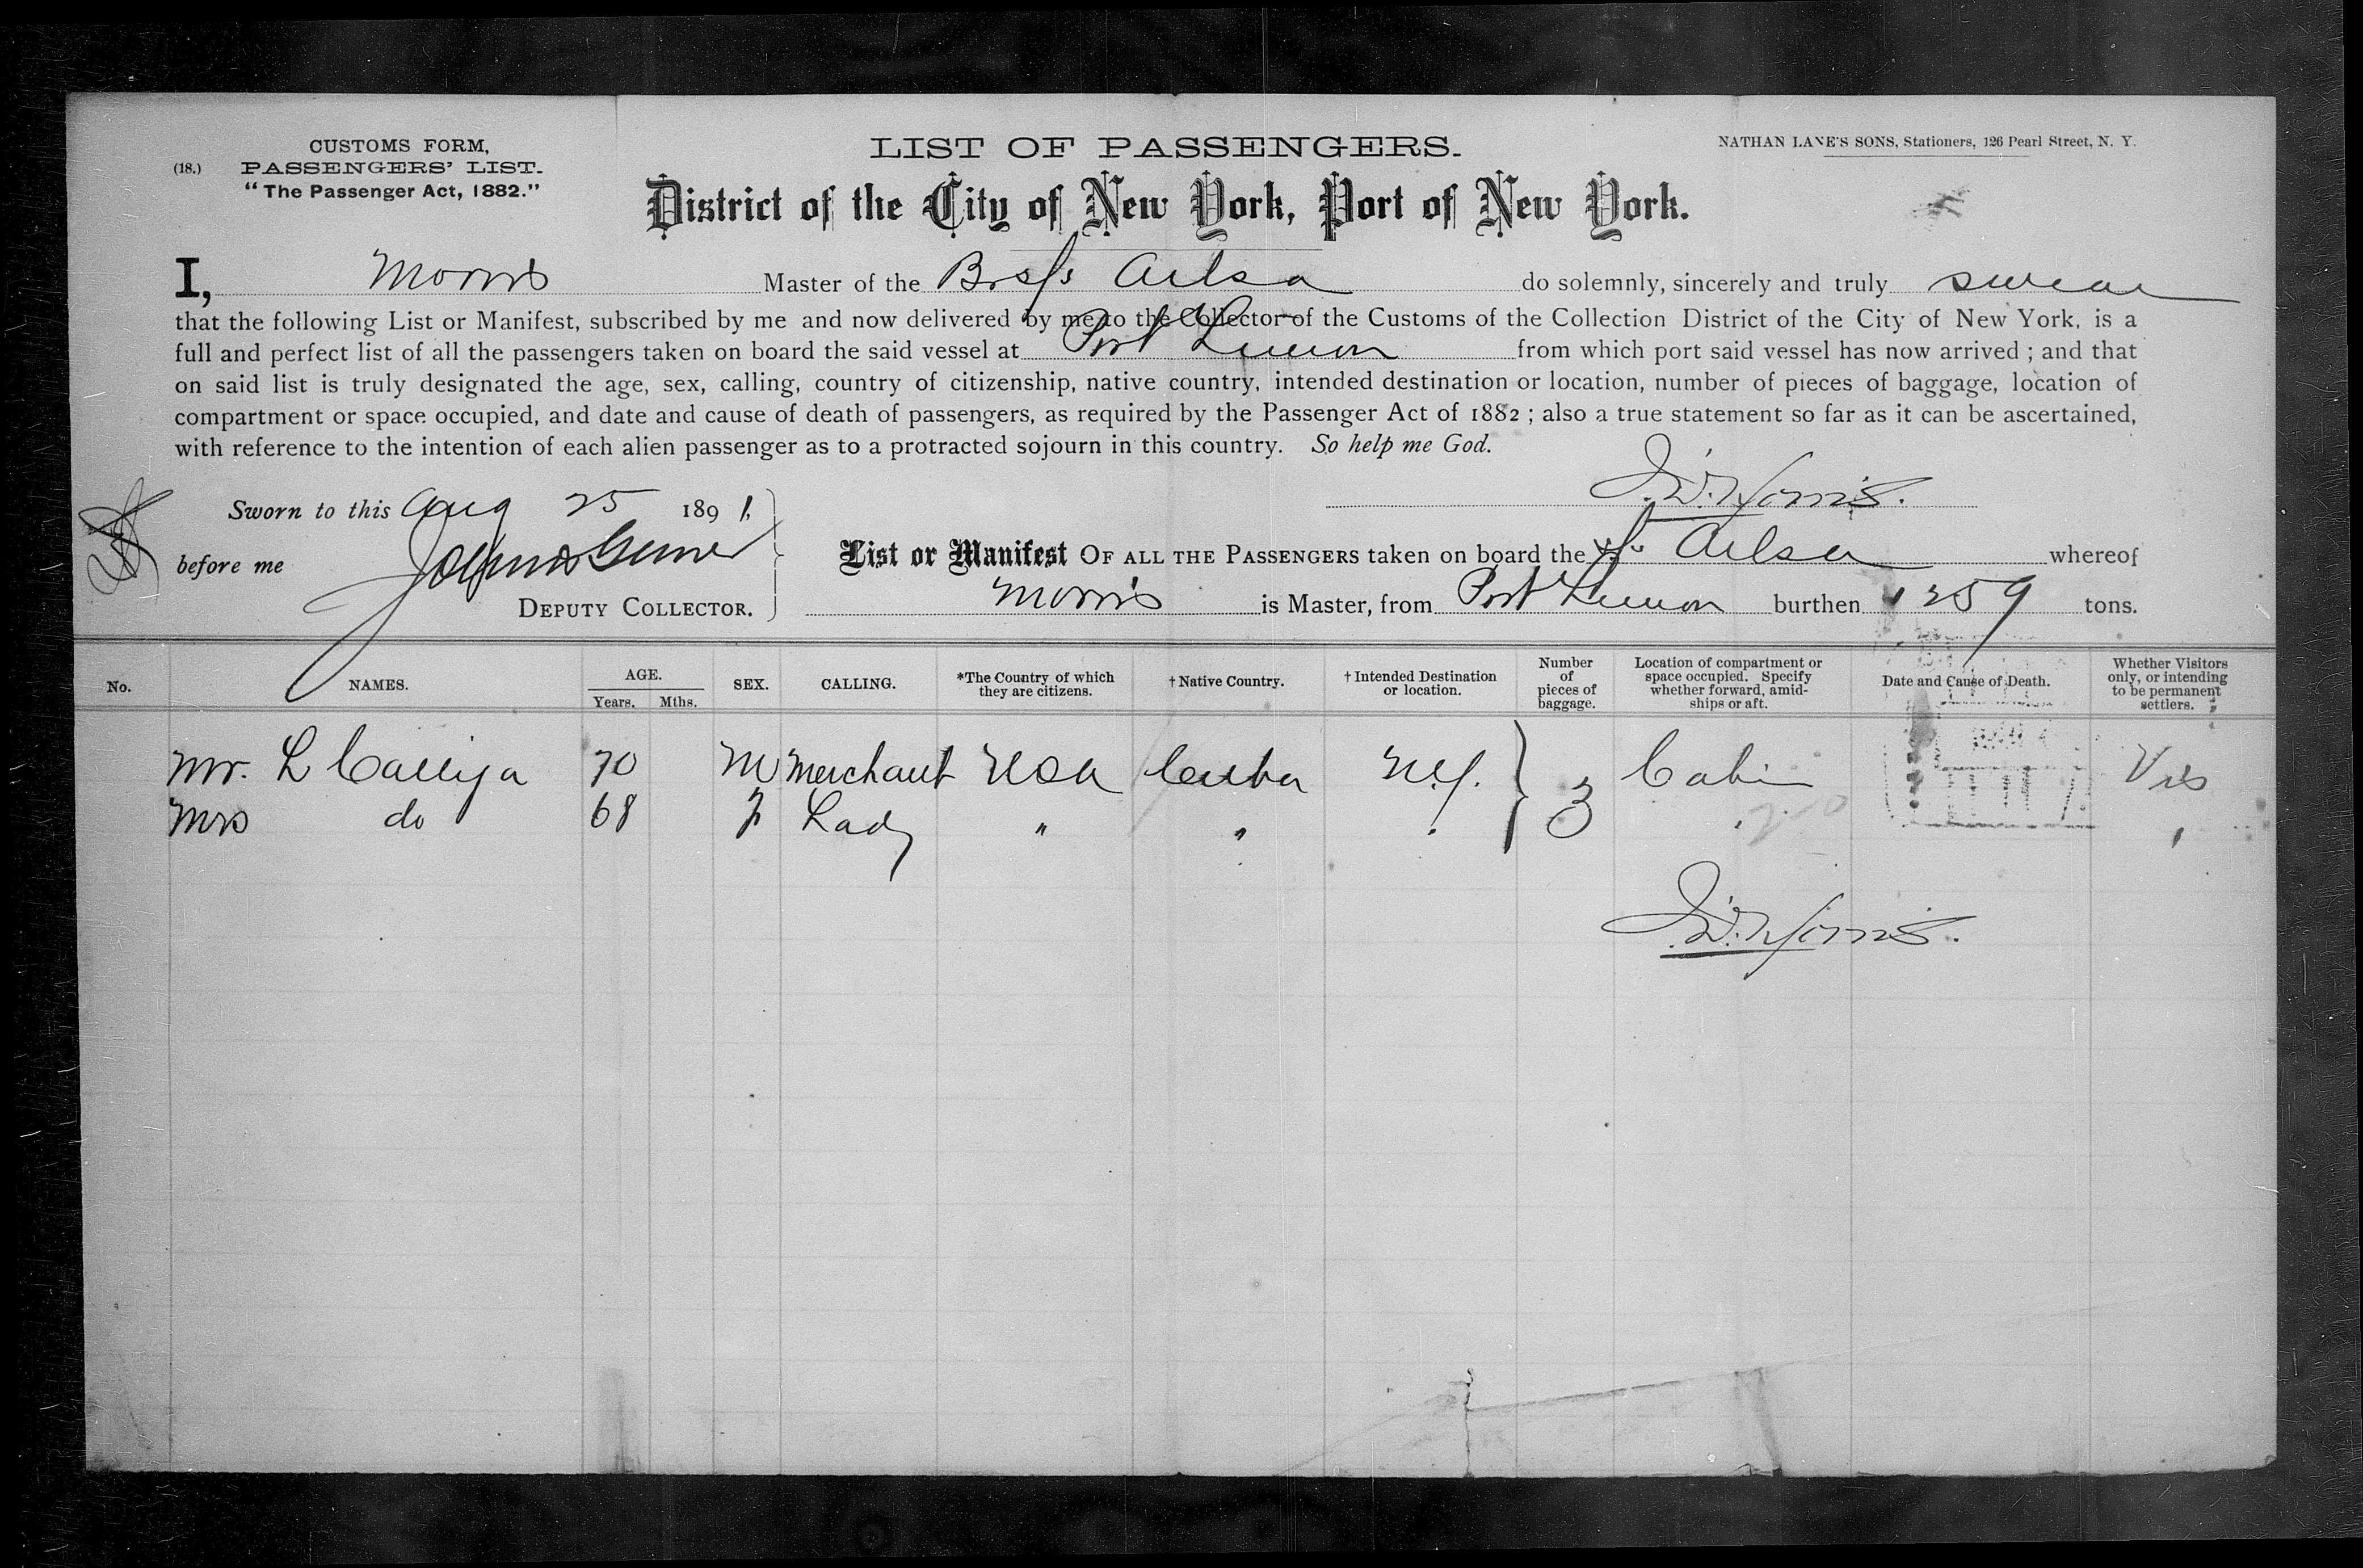 CUSTOMS FORM,
(18.) PASSENGERS' LIST.
"The Passenger Act, 1882."
LIST OF PASSENGERS.
NATHAN LANE'S SONS, Stationers, 126 Pearl Street, N. Y.
District of the City of New York, Port of New York.
I, Morris Master of the Br s/s Ailsa do solemnly, sincerely and truly swear
that the following List or Manifest, subscribed by me and now delivered by me to the Collector of the Customs of the Collection District of the City of New York, is a
full and perfect list of all the passengers taken on board the said vessel at Port Limon from which port said vessel has now arrived ; and that
on said list is truly designated the age, sex, calling, country of citizenship, native country, intended destination or location, number of pieces of baggage, location of
compartment or space occupied, and date and cause of death of passengers, as required by the Passenger Act of 1882 ; also a true statement so far as it can be ascertained,
with reference to the intention of each alien passenger as to a protracted sojourn in this country. So help me God.
J.W. Morris.
Sworn to this Aug 25 1891,
before me
DEPUTY COLLECTOR.
List or Manifest OF ALL THE PASSENGERS taken on board the s/s Ailsa whereof
Morris is Master, from Port Limon burthen 1259 tons.
No. NAMES. AGE. Years. Mths. SEX. CALLING. *The Country of which they are citizens. † Native Country. † Intended Destination or location. Number of pieces of baggage. Location of compartment or space occupied. Specify whether forward, amidships or aft. Date and Cause of Death. Whether Visitors only, or intending to be permanent settlers.
Mr. L 70 M Merchant USA Cuba N.Y. 3 Cabin Vis
Mrs do 68 F Lady " " " " "
J.W. Morris.